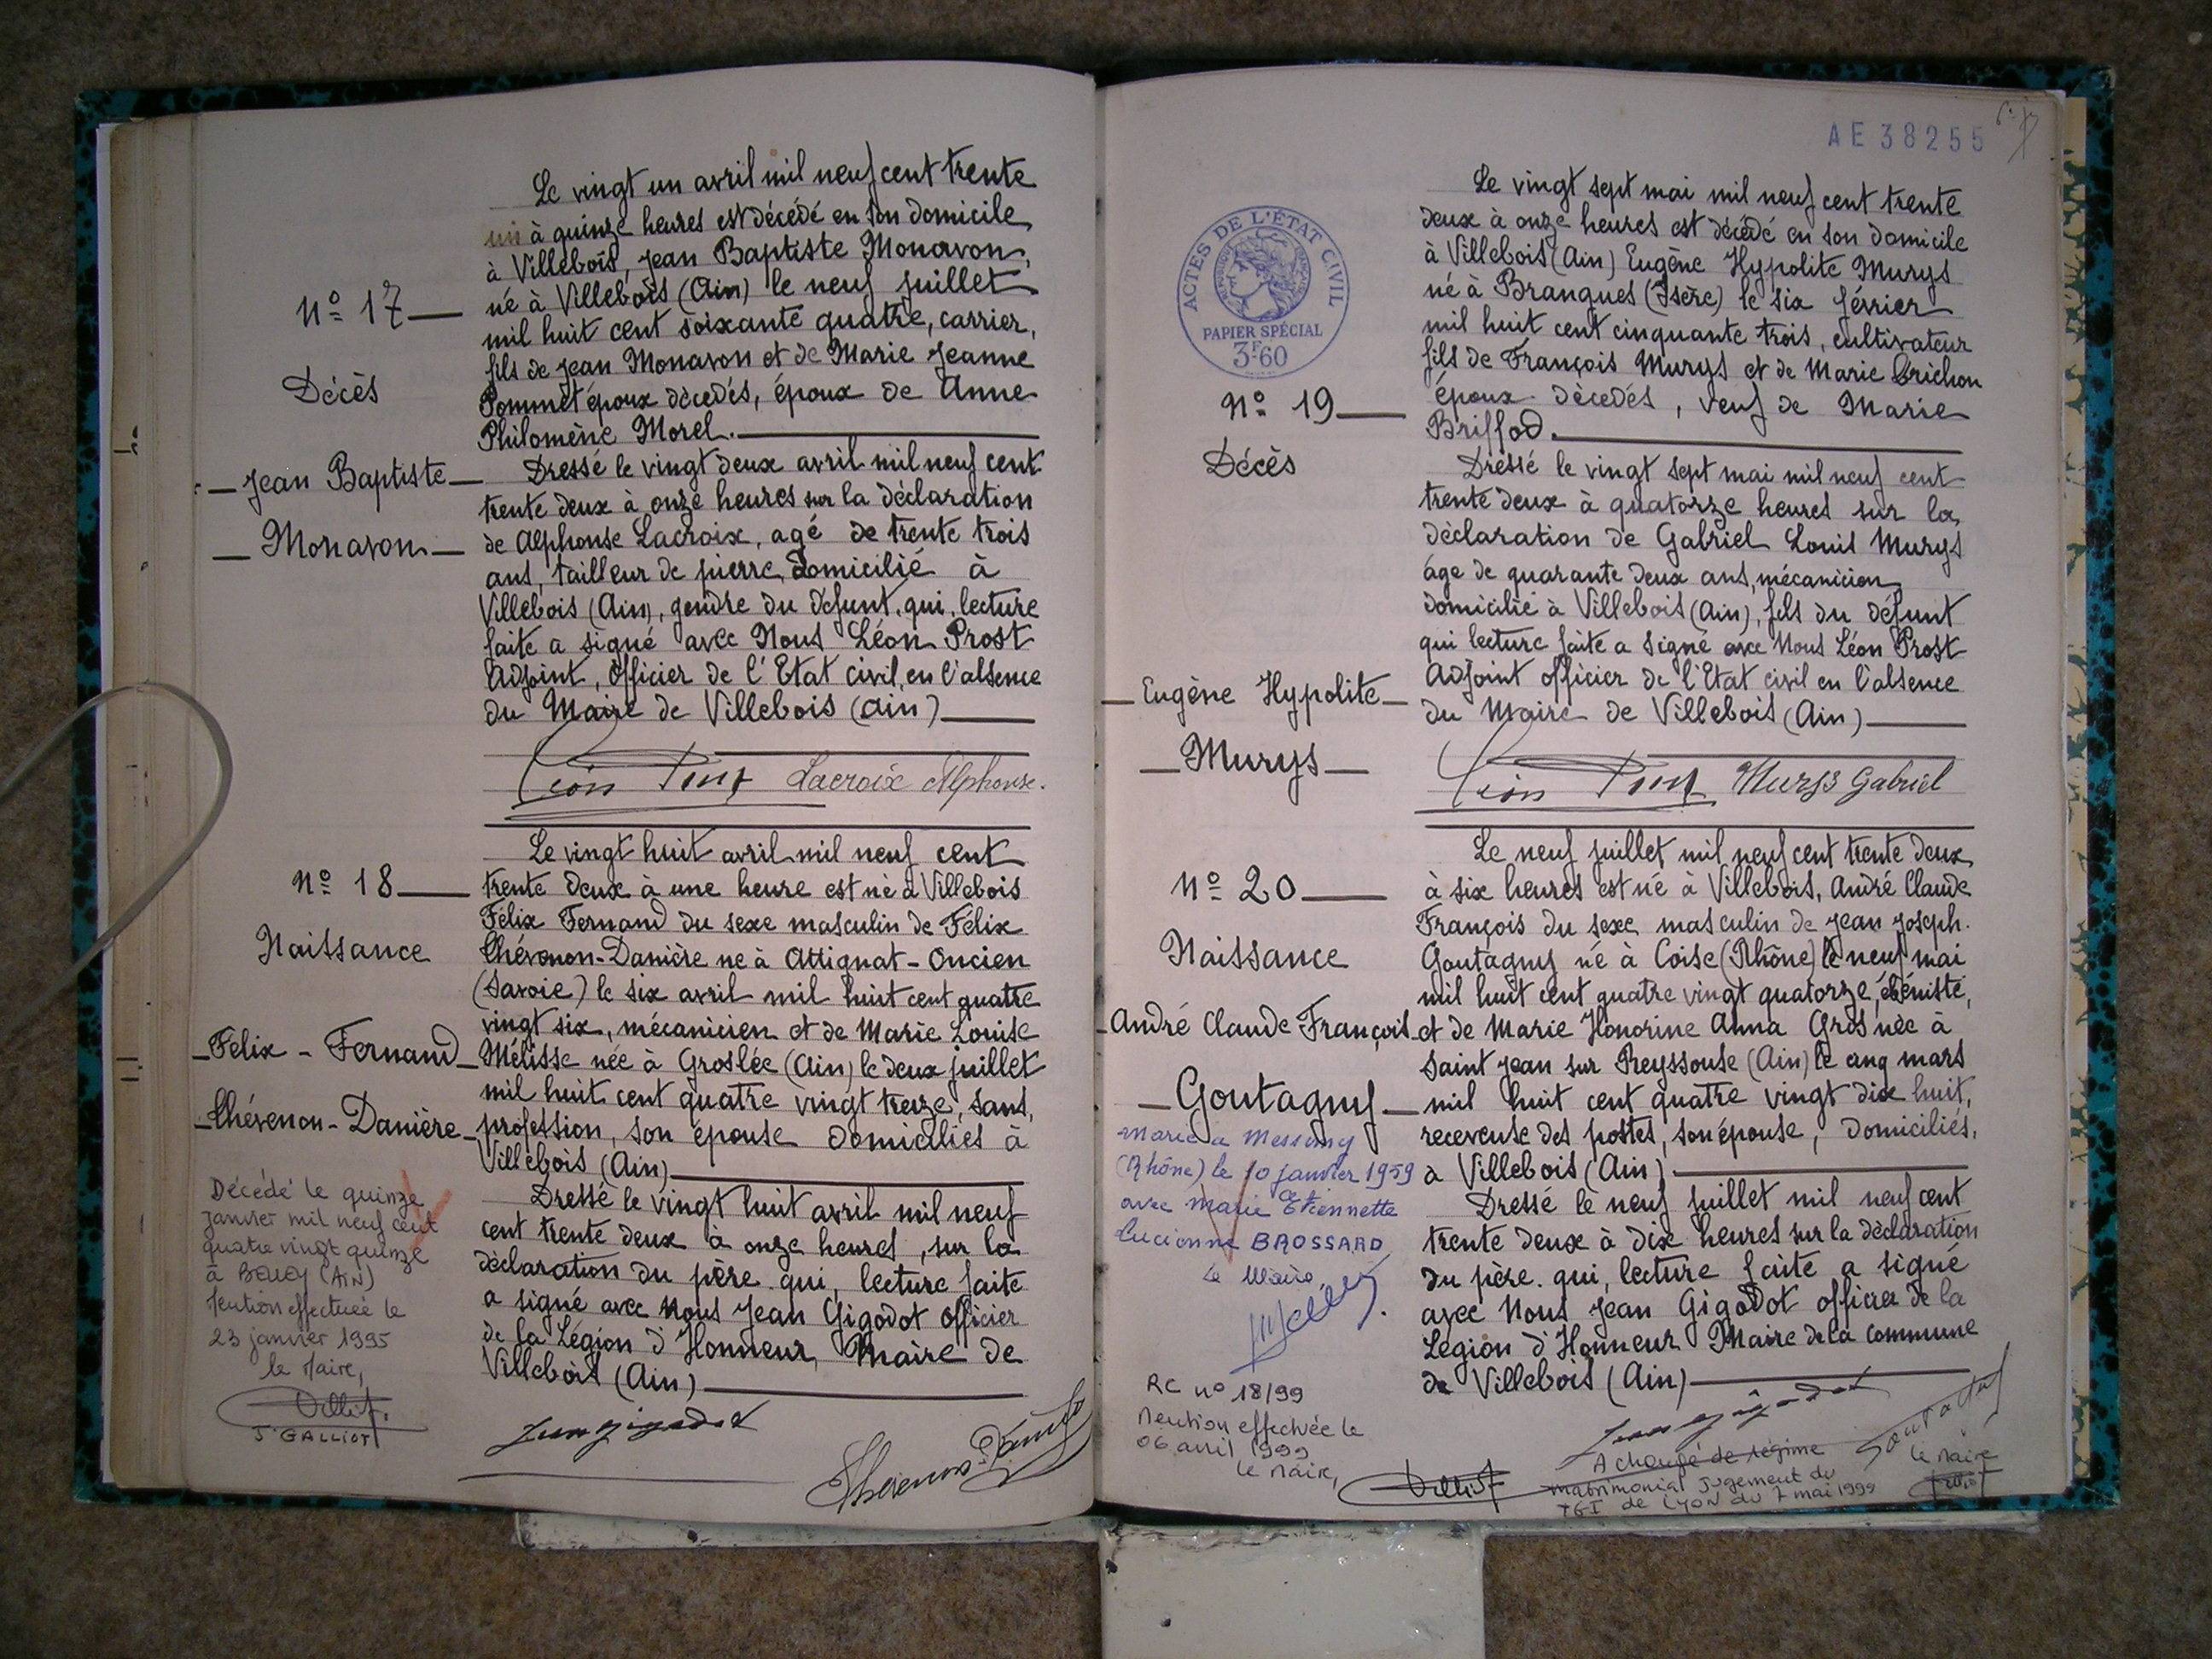 Le vingt un avril mil neuf cent trente
à quinze heures est décédé en son domicile
à Villebois, Jean Baptiste Monavon,
né à Villebois (Ain) le neuf juillet
mil huit cent soixante quatre, carrier,
fils de Jean Monavon et de Marie Jeanne
Pommet époux décedés, époux de Anne
Philomène Morel.
Dressé le vingt deux avril mil neuf cent
trente deux à onze heures sur la déclaration
de Alphonse Lacroix, agé de trente trois
ans, tailleur de pierre, domicilié à
Villebois (Ain), gendre du défunt, qui, lecture
faite a signé avec Nous Léon Prost
Adjoint, Officier de l'Etat civil, en l'absence
du Maire de Villebois (Ain)
Nº 17
Décès
Jean Baptiste
Monavon
Léon Prost Lacroix Alphonse.
Nº 18
Naissance
Félix - Fernand
Chévenon-Danière
Le vingt huit avril mil neuf cent
trente deux à une heure est né à Villebois
Félix Fernand du sexe masculin de Félix
Chévenon-Danière né à Attignat-Oncien
(Savoie) le six avril mil huit cent quatre
vingt six, mécanicien et de Marie Louise
Mélisse née à Groslée (Ain) le deux juillet
mil huit cent quatre vingt treize, sans,
profession, son épouse domiciliés à
Villebois (Ain)
Dressé le vingt huit avril mil neuf
cent trente deux à onze heures, sur la
déclaration du père qui, lecture faite
a signé avec nous Jean Gigodot Officier
de la Légion d'Honneur, Maire de
Villebois (Ain)
Décédé le quinze
janvier mil neuf cent
quatre vingt quinze
à BELLEY (AIN)
Mention effectuée le
23 janvier 1995
le Maire,
J. GALLIOT
Jean Gigodot
AE 38255
ACTES DE L'ÉTAT CIVIL
PAPIER SPÉCIAL
3F60
Nº 19
Décès
Eugène Hypolite
Murys
Le vingt sept mai mil neuf cent trente
deux à onze heures est décédé en son domicile
à Villebois (Ain) Eugène Hypolite Murys
né à Brangues (Isère) le six février
mil huit cent cinquante trois, cultivateur
fils de François Murys et de Marie Crichon
époux décedés, veuf de Marie
Briffod.
Dressé le vingt sept mai mil neuf cent
trente deux à quatorze heures sur la
déclaration de Gabriel Louis Murys
âgé de quarante deux ans, mécanicien
domicilié à Villebois (Ain), fils du défunt
qui lecture faite a signé avec Nous Léon Prost
Adjoint officier de l'Etat civil en l'absence
du Maire de Villebois (Ain)
Léon Prost Murys Gabriel
Nº 20
Naissance
André Claude François
Goutagny
Le neuf juillet mil neuf cent trente deux
à six heures est né à Villebois, André Claude
François du sexe masculin de Jean Joseph
Goutagny né à Coise (Rhône) le neuf mai
mil huit cent quatre vingt quatorze, ébéniste,
et de Marie Honorine Anna Gros née à
Saint Jean sur Reyssouse (Ain) le cinq mars
mil huit cent quatre vingt dix huit,
receveuse des postes, son épouse, domiciliés,
à Villebois (Ain)
Dressé le neuf juillet mil neuf cent
trente deux à dix heures sur la déclaration
du père qui, lecture faite a signé
avec Nous Jean Gigodot officier de la
Légion d'Honneur Maire de la commune
de Villebois (Ain)
Marié à Messimy
(Rhône) le 10 janvier 1959
avec Marie Etiennette
Lucienne BROSSARD
Le Maire,
RC nº 18/99
Mention effectuée le
06 avril 1999
le Maire,
Jean Gigodot
A changé de régime
matrimonial Jugement du
TGI de LYON du 7 mai 1999
le Maire